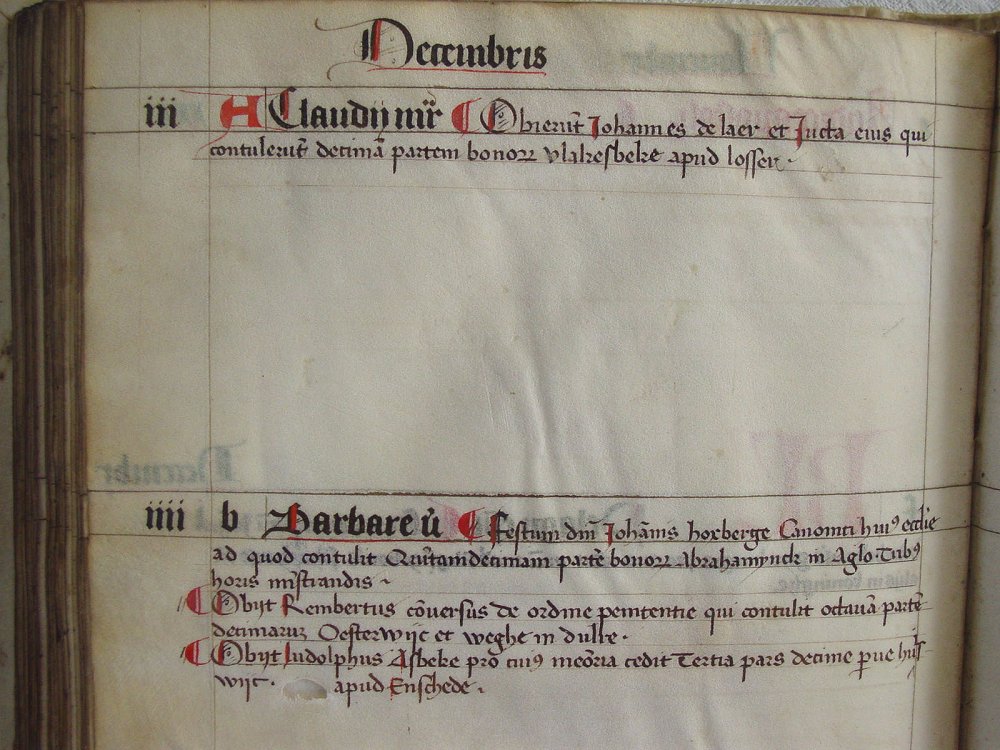 Decembris
iii A Claudij mr̄ Obierūt Johannes de laer et Jucta eius qui
contulerūt decimā partem bonoꝝ vlakesbeke apud losser .
iiii b Barbare ṽ Festum dnī Johānis horberge Canonici huiꝰ ecclīe
ad quod contulit Quītamdecimam partē bonoꝝ Abrahamynck in Aglo Tribꝰ
horis mīstrandis
Obijt Rembertus cōversus de ordine penitentie qui contulit octavā partē
decimaruʒ Oesterwijc et weghe in dulre .
Obijt Ludolphus Asbeke pro cuiꝰ meōria cedit Tertia pars decime
wijc . apud Enschede .